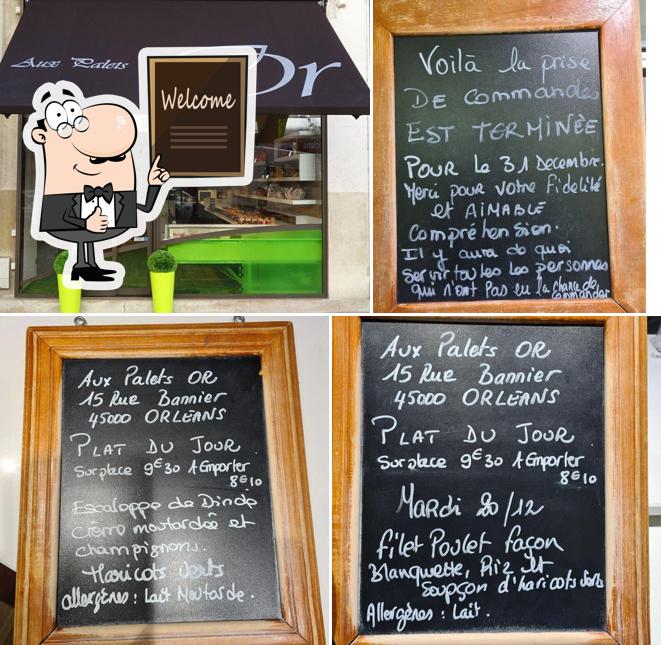 Aux Palets Or
Welcome
Voilà la prise
DE Commandes
EST TERMINÉE
POUR le 31 Decembre.
Merci pour votre fidelité
et AIMABLE
Compréhension.
Il y aura de quoi
Servir toutes les personnes
qui n'ont pas eu la chance de
Commander
Aux Palets OR
15 Rue Bannier
45000 ORLEANS
PLAT DU JOUR.
Sur place 9€30 A Emporter
8€10
Escaloppe de Dinde
Crème moutardée et
champignons.
Haricots verts
allergènes : lait Moutarde.
Aux Palets OR
15 Rue Bannier
45000 ORLEANS
PLAT DU JOUR.
Sur place 9€30 A Emporter
8€10
Mardi 20/12
filet Poulet façon
Blanquette, Riz et
Soupçon d'haricots verts
Allergènes : Lait.